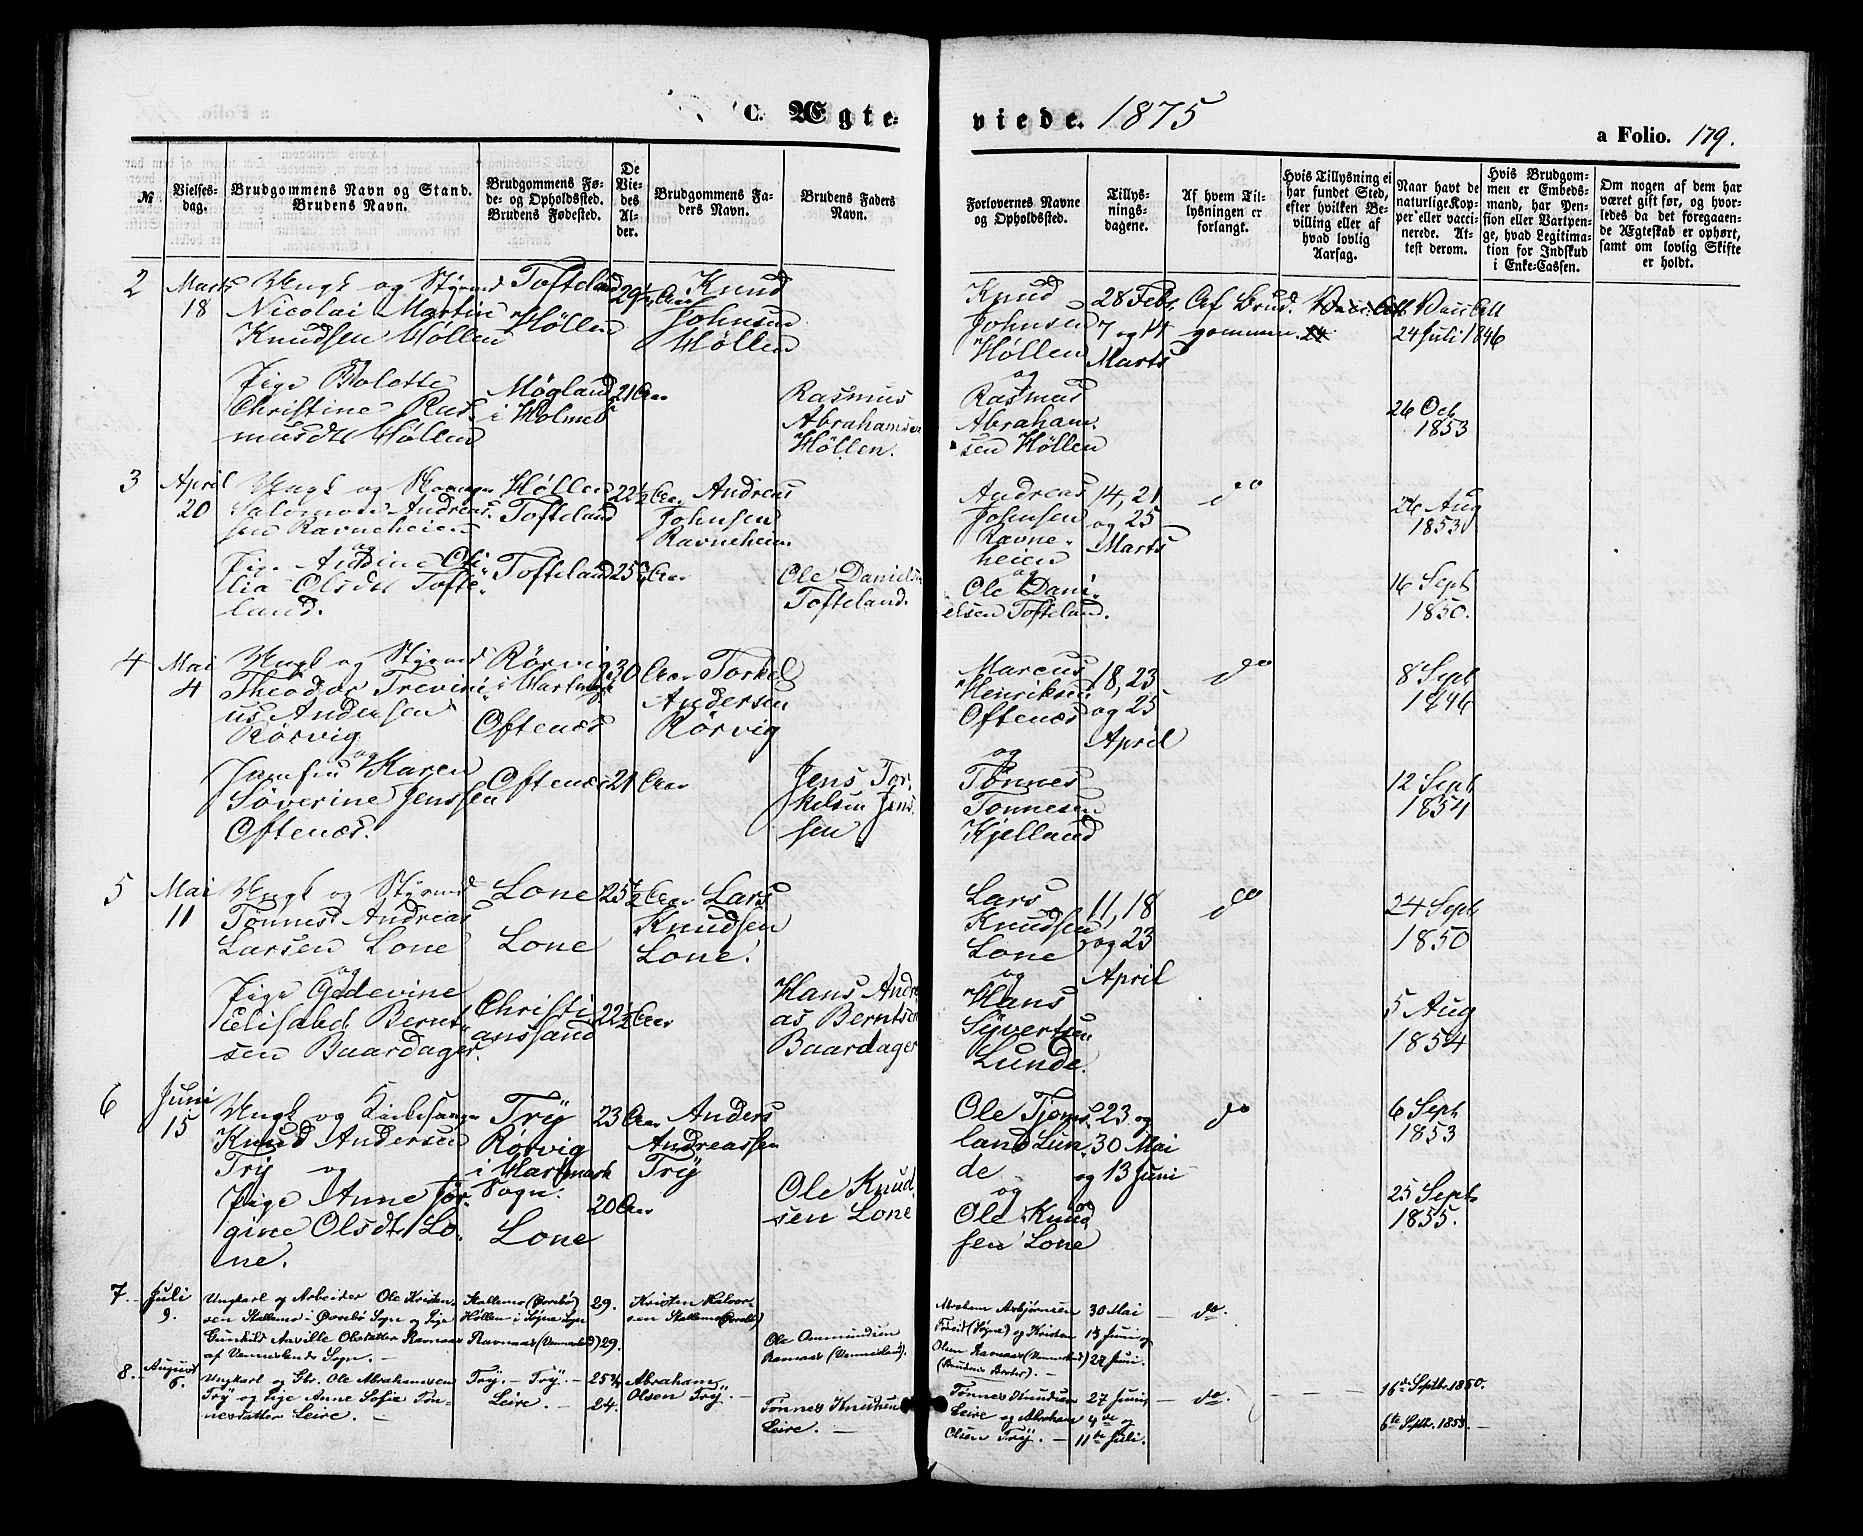 C. Ægte-
viede. 1875
a Folio. 179.
№
Vielses-
dag.
Brudgommens Navn og Stand.
Brudens Navn.
Brudgommens Fø-
de- og Opholdssted.
Brudens Fødested.
De
Vie-
des
Al-
der.
Brudgommens Fa-
ders Navn.
Brudens Faders
Navn.
Forlovernes Navne
og Opholdssted.
Tillys-
nings-
dagene.
Af hvem Til-
lysningen er
forlangt.
Hvis Tillysning ei
har fundet Sted,
efter hvilken Be-
villing eller af
hvad lovlig
Aarsag.
Naar havt de
naturlige Kop-
per eller vacci-
nerede. At-
test derom.
Hvis Brudgom-
men er Embeds-
mand, har Pen-
sion eller Vartpen-
ge, hvad Legitima-
tion for Indskud
i Enke-Cassen.
Om nogen af dem har
været gift før, og hvor-
ledes da det foregaaen-
de Ægteskab er ophørt,
samt om lovlig Skifte
er holdt.
2
Marts
18
Ungk og Styrmd
Nicolai Martin
Knudsen Høllen
Tofteland
Høllen
29½ Aar
Knud
Johnsen
Høllen
Knud
Johnsen
Høllen
og
28 Febr,
7 og 14
Marts
Af Brud-
gommen.
Vacc. Att
24 Juli 1846
Pige Bolette
Christine Ras
musdt Høllen
Møgland
i Holme
21 Aar
Rasmus
Abrahamsen
Høllen.
Rasmus
Abraham-
sen Høllen
26 Oct
1853
3
April
20
Ungk og
Salomon Andreas-
sen Ravneheien
og
Høllen
Tofteland
22½ Aar
Andreas
Johnsen
Ravneheien
Andreas
Johnsen
Ravne-
heien
og
14, 21
og 25
Marts
do
26 Aug
1853
Pige Andine Ci-
lia Olsdt Tofte-
land.
Tofteland
25¾ Aar
Ole Daniels
Tofteland.
Ole Dani-
elsen Tofteland.
16 Sept
1850.
4
Mai
4
Ungk og Styrmd
Theodor Trevini-
us Andersen
Rørvig
og
Rørvig
i Hartmark
Oftenæs
30 Aar
Torkel
Andersen
Rørvig
Marcus
Henriksen
Oftenæs
og
18, 23
og 25
April
do
8 Sept
1846
Jomfru Karen
Søverine Jenssen
Oftenæs.
Oftenæs
21 Aar
Jens Tor-
kelsen Jens-
sen
Tønnes
Tønnesen
Kjelland
12 Sept
1854
5
Mai
11
Ungk og Styrmd
Tønnes Andreas
Larsen Lone
og
Lone
Lone
25½ Aar
Lars
Knudsen
Lone.
Lars
Knudsen
Lone
og
11, 18
og 23
April
do
24 Sept
1850
Pige Gedevine
Elisabet Bernt-
sen Baardager.
Christi
anssand
22½ Aar
Hans Andre
as Berntsen
Baardager
Hans
Syvertsen
Lunde.
5 Aug
1854
6
Juni
15
Ungk og Kirkesanger
Knud Andersen
Try og
Try
Rørvig
i Hartmark
Sogn.
23 Aar
Anders
Andreassen
Try
Ole Tjoms-
land Lun-
de
og
23 og
30 Mai
og 13 Juni
do
6 Sept
1853
Pige Anne Jør-
gine Olsdt Lo-
ne.
Lone
20 Aar
Ole Knud-
sen Lone
Ole Knud
sen Lone
25 Sept
1855.
7.
Juli
9.
Ungkarl og Arbeider Ole Kristen-
sen Stallemo i Øvrebø Sogn og Pige
Gunhild Amville Olsdatter Ravnaas
af Vennesland Sogn. —
Stallemo (Øvrebø)
Høllen i Søgne Sogn
Ravnaas (Vennesland)
29.
29.
Kristen Halvor-
sen Stallemo (Øvrebø)
Ole Ommundsen
Ravnaas (Vennesland).
Abraham Asbjørnsen
(Søgne) og Kristen
Olsen Ravnaas (Vennesland)
(Brudens Broder). —
30 Mai
13 Juni og
27 Juni.
— do. —
8.
August
6.
Ungkarl og Str. Ole Abrahamsen
Try og Pige Anne Sofie Tøn-
nesdatter Leire. —
Try. — Try. —
Leire. —
25¾
24.
Abraham
Olsen Try. —
Tønnes Knudsen
Leire. —
Tønnes Knudsen
Leire og Abraham
Olsen Try. —
27 Juni,
4de og
11te Juli.
— do. —
16de Septbr. 1850.
6te Septbr. 1853. —